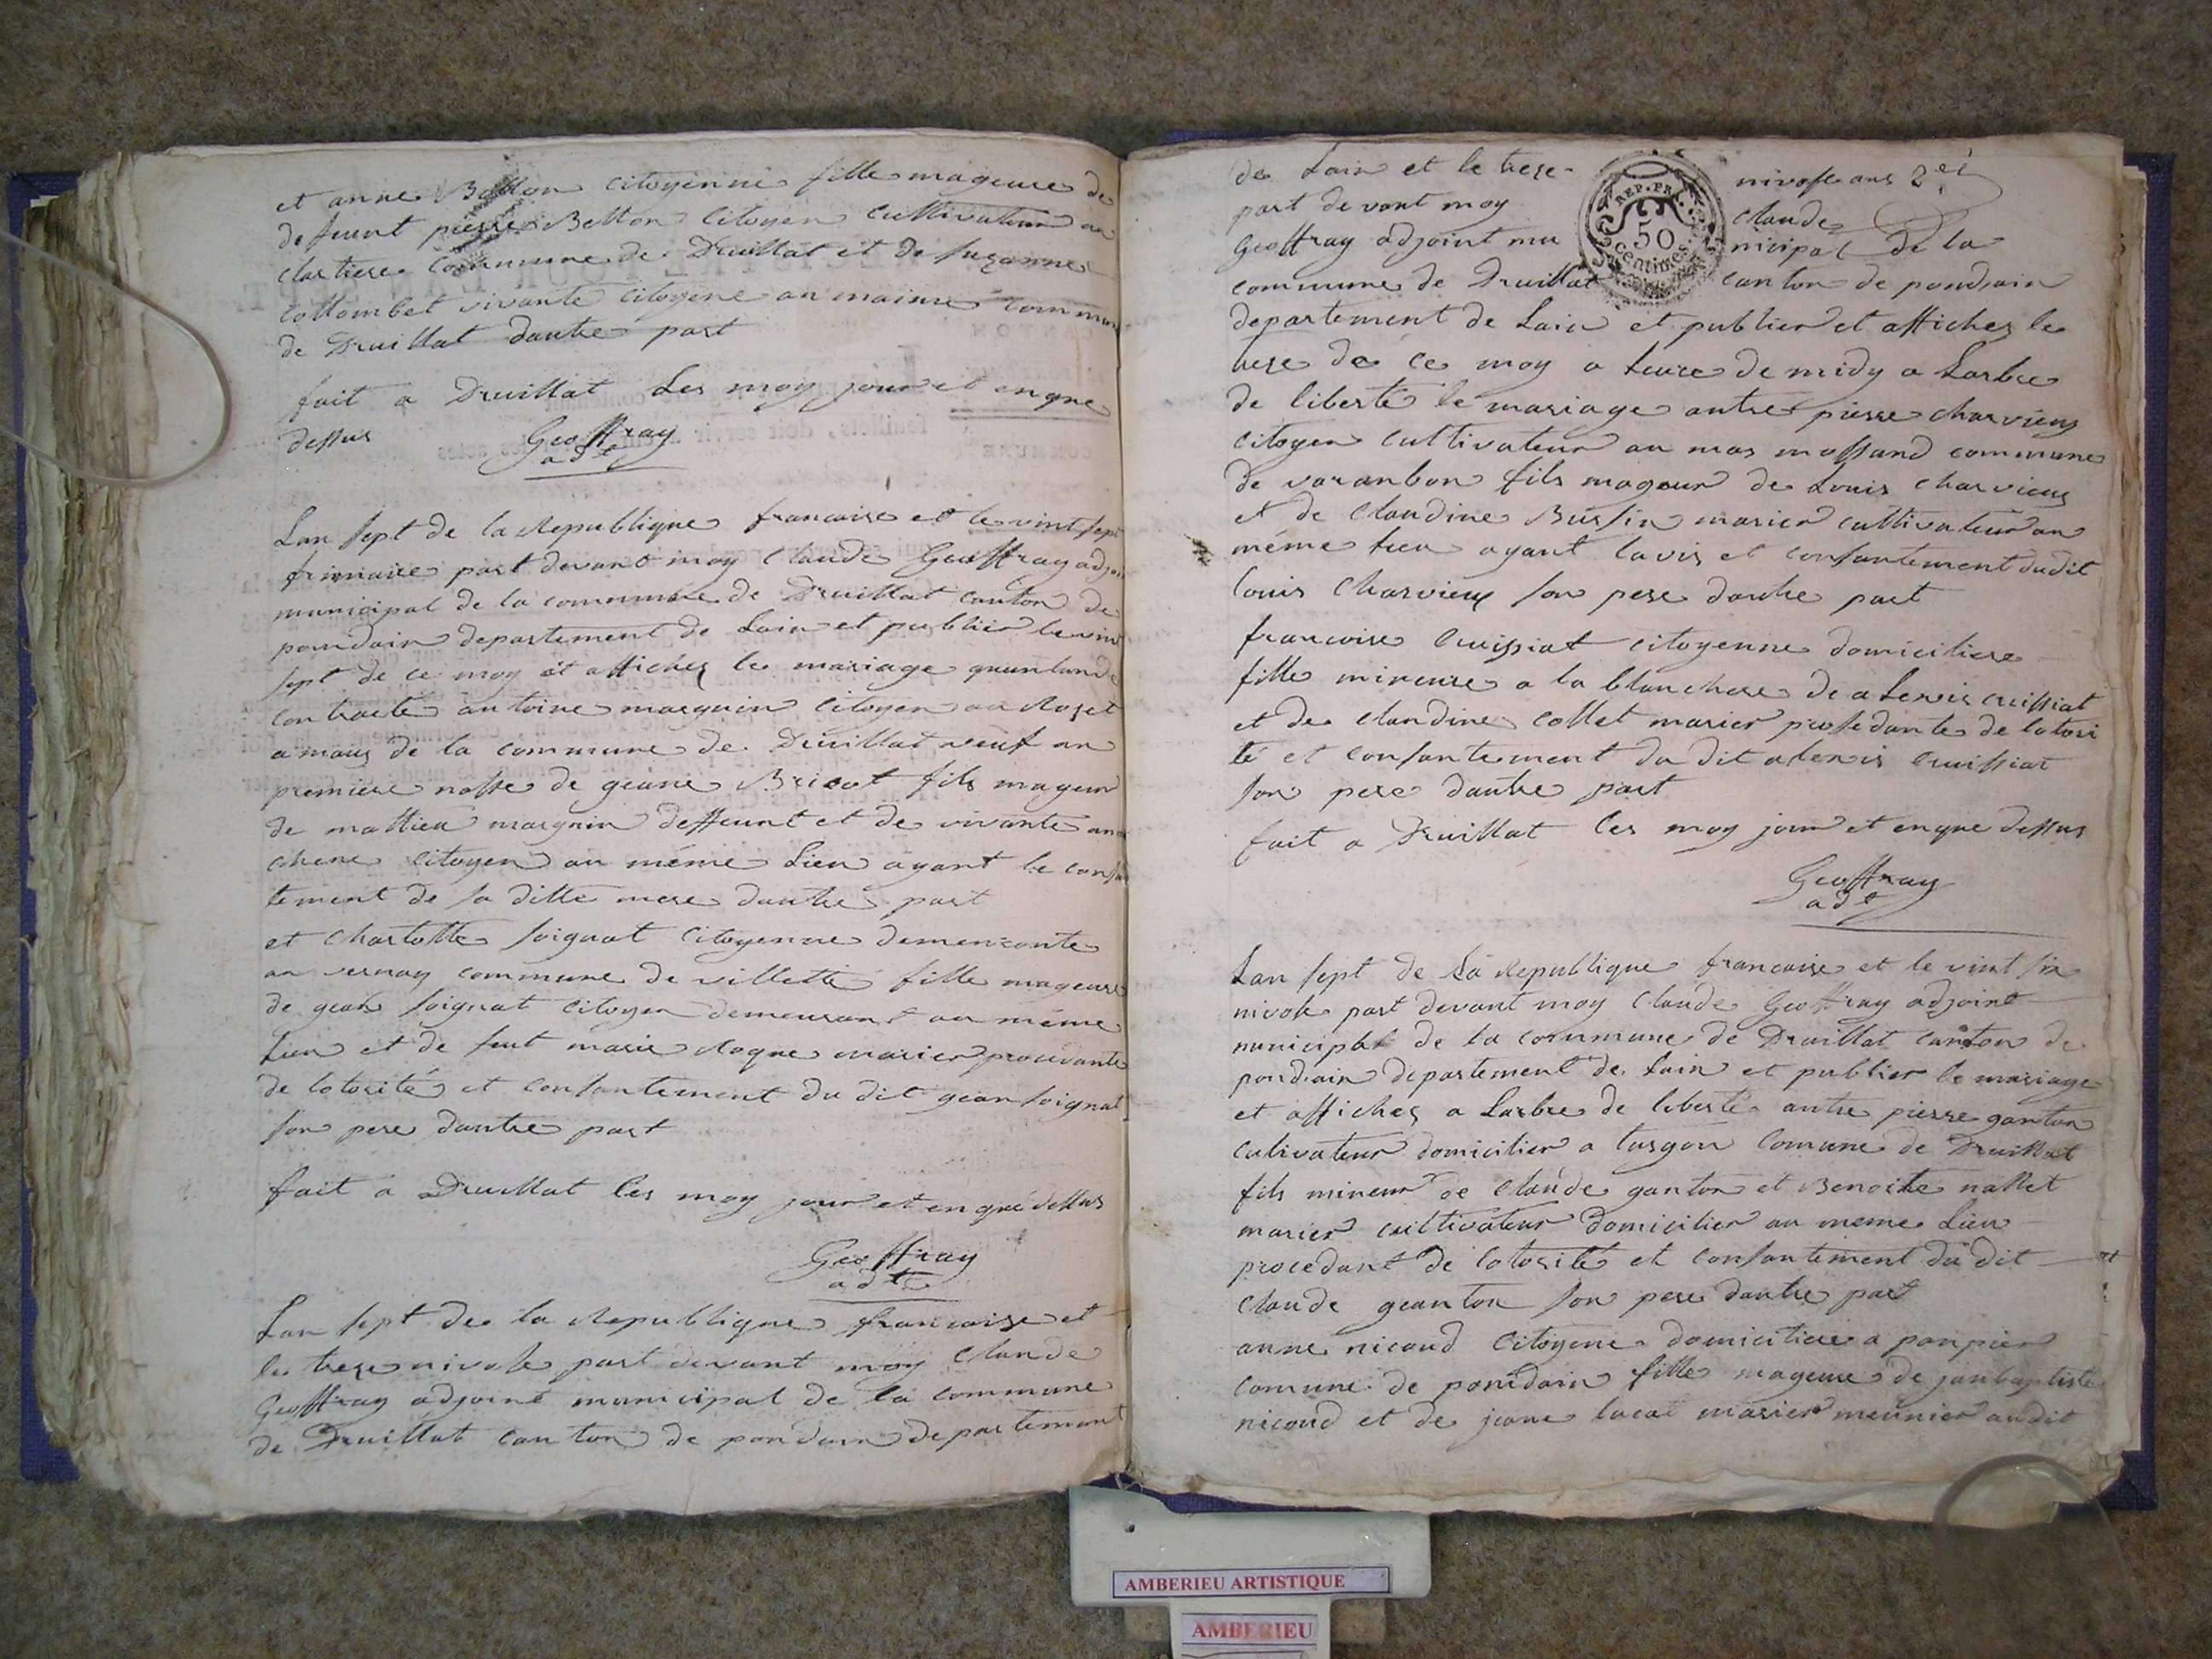 et anne Botton citoyenne fille mageure de
defeunt pierre Botton citoyen cultivateur au
clartiere commune de Druillat et de suzanne
collombet vivante citoyene au maime commun
de Druillat dautre part
fait a Druillat les moy jour et enque
dessus Geoffray
adt
Lan sept de la Republique francaise et le vint sept
frimaire part devant moy Claude Geoffray adjoi
municipal de la commune de Druillat canton de
pondain departement de Lain et publier le vin
sept de ce moy et affiches le mariage
contracté antoine marguin citoyen au Roset
a maus de la commune de Druillat veuf an
premiere nosse de geane Bricot fils mageur
de mattieu marguin deffeunt et de vivante
chene citoyen au méme Lieu ayant le consan
tement de sa ditte mere dautre part
et charlotte soignat citoyenne
au vernay commune de villette fille mageure
de gean soignat citoyen demeurant au méme
Lieu et de feut marie Roque marier
de lotorité et consantement du dit gean soignat
son pere dautre part
fait a Druillat les moy jour et enque dessus
Geoffray
adt
Lan sept de la Republique francaise et
le treze nivose part devant moy Claude
Geoffray adjoint municipal de la commune
de Druillat canton de pondain departement
de Lain et le treze nivose ans
part devant moy claude
Geoffray adjoint municipal de la
REP. FRA. 50 centimes
commune de Druillat canton de pondain
departement de Lain et publier et affiches le
treze de ce moy a leure de midy a Larbre
de liberté le mariage antre pierre charvieux
citoyen cultivateur au mas massand commune
de varanbon fils mageur de Louis charvieux
et de Claudine marier cultivateur au
méme lieu ayant lavis et consantement dudit
louis Charvieux son pere dautre part
francoise Cruissiat citoyenne domiciliere
fille mineure a la blanchere de alexis cruissiat
et de claudine collet marier prosedante de lotori
té et consantement du dit alexis Cruissiat
son pere dautre part
fait a Druillat les moy jour et enque dessus
Geoffray
adt
Lan sept de La Republique francaise et le vint six
nivose part devant moy Claude Geoffray adjoint
municipal de la commune de Druillat canton de
pondain departement de Lain et publier le mariage
et affiches a Larbre de liberté antre pierre ganton
cultivateur domicilier a turgon comune de Druillat
fils mineur de Claude ganton et Benoite nallet
marier cultivateur domicilier au meme Lieu
procedant de lotorité et consantement du dit
Claude geanton son pere dautre part
anne nicoud citoyene domiciliere a
comune de pondain fille mageure de janbaptiste
nicoud et de jeane lucat marier meunier audit
AMBERIEU ARTISTIQUE
AMBERIEU